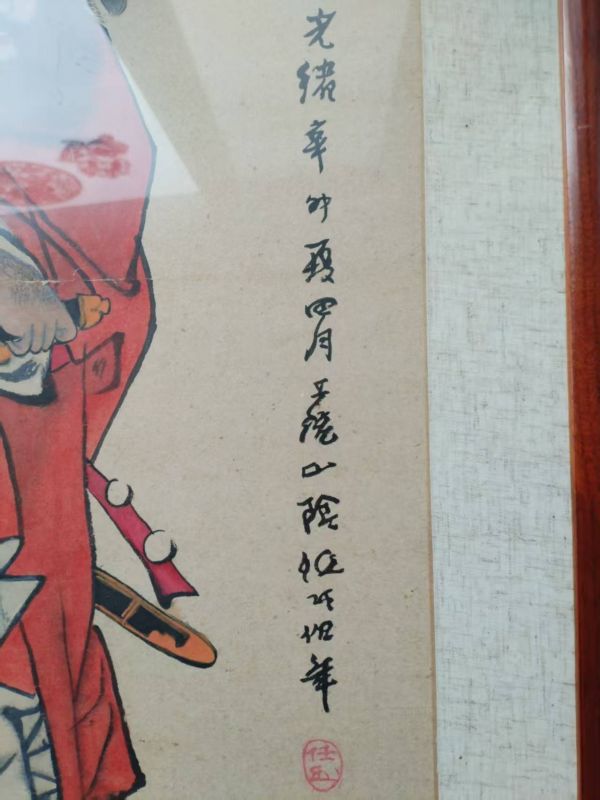 光緒辛卯夏四月上浣山陰任頤伯年
任